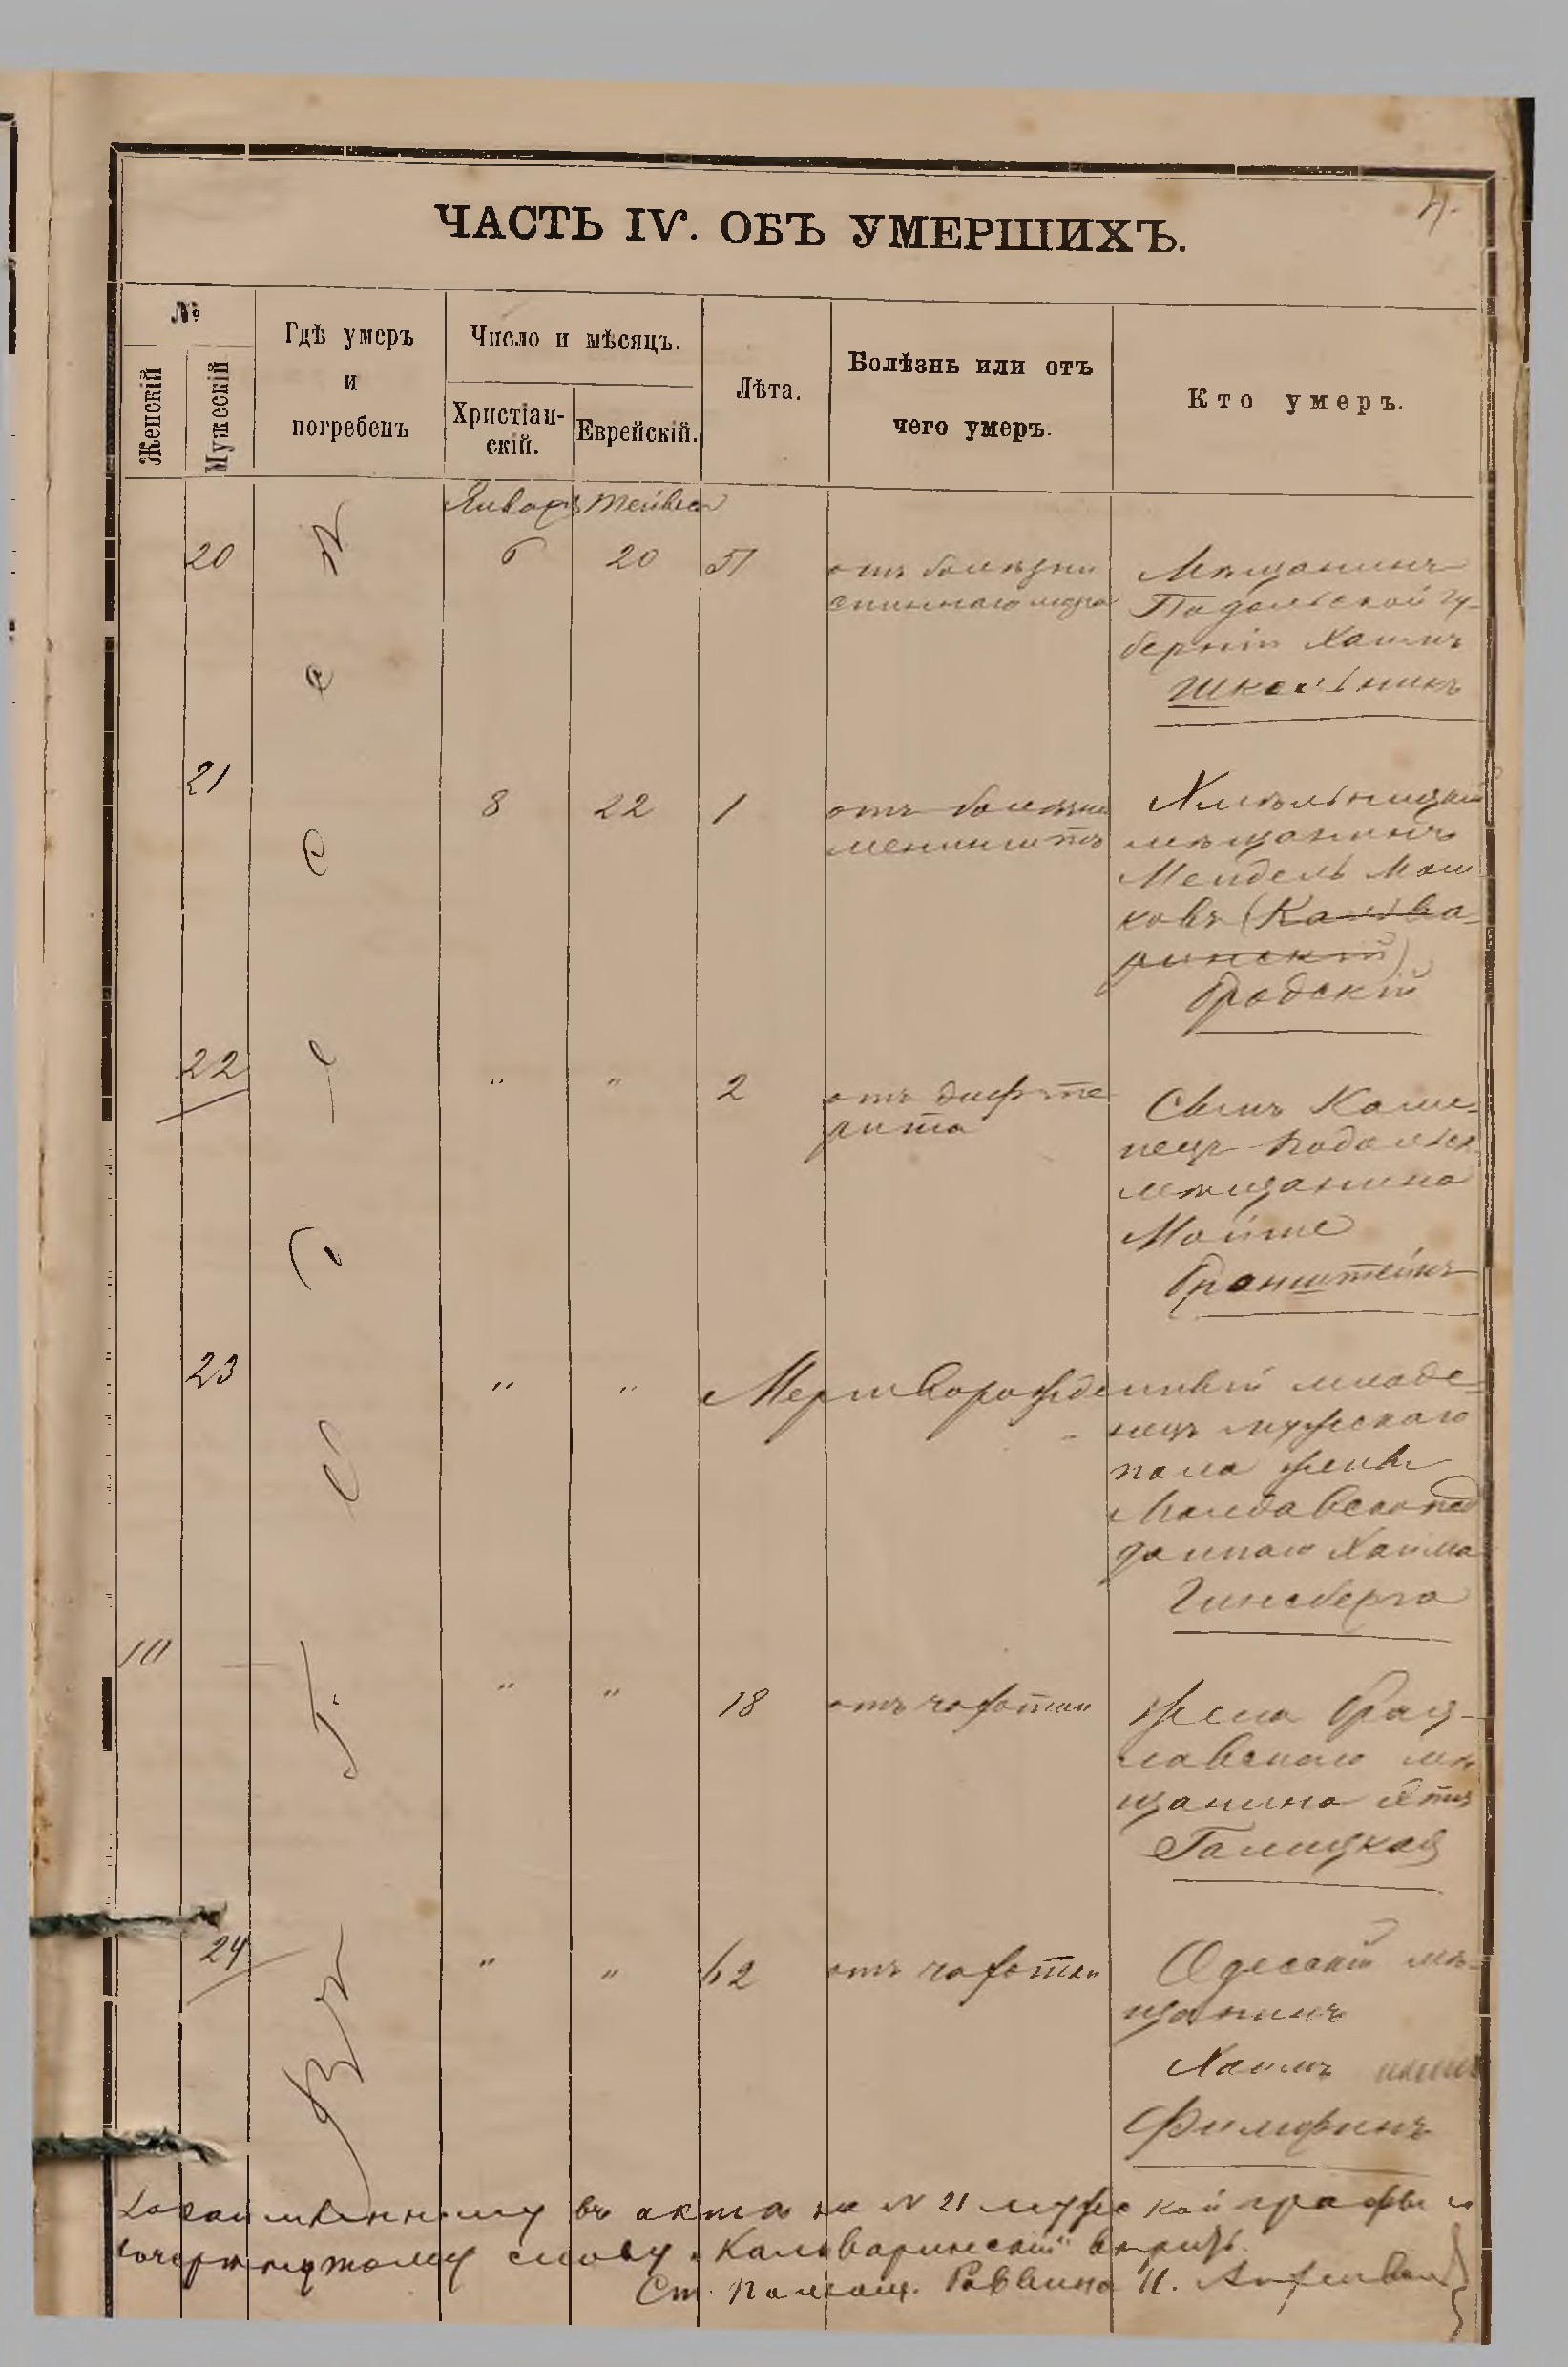 4.
ЧАСТЬ IV. ОБЪ УМЕРШИХЪ.
№
Женскій
Мужескій
Гдѣ умеръ
и
погребенъ
Число и мѣсяцъ.
Христіан-
скій.
Еврейскій.
Лѣта.
Болѣзнь или отъ
чего умеръ.
Кто умеръ.
Январь Тейвесъ
20 6 20 51 отъ болѣзни
спиннаго мозга
Мѣщанинъ
Подольской гу-
берніи Хаимъ
Школьникъ
21 8 22 1 отъ болѣзни
менингитъ
Хмѣльницкій
мѣщанинъ
Мендель Мош
ковъ (Кальва-
ринскій)
Бродскій
22 " " 2 отъ дифте
рита
Сынъ Каме-
нецъ Подольск.
мѣщанина
Мойше
Бронштейнъ
23 " " Мертворожденный младе-
нецъ мужескаго
пола жены
Молдавскопод
даннаго Хаима
Гинсберга
10 " " 18 отъ чахотки
Жена Брац-
лавскаго мѣ
щанина
Галицкая
24 " " 62 отъ чахотки
Одесскій мѣ-
щанинъ
Хаимъ
въ актѣ на № 21 мужской графы и
зачеркнутому слову "Кальваринскій" вѣрить.
Ст. Помощ. Раввина И.
Одесса
Г. Одесса